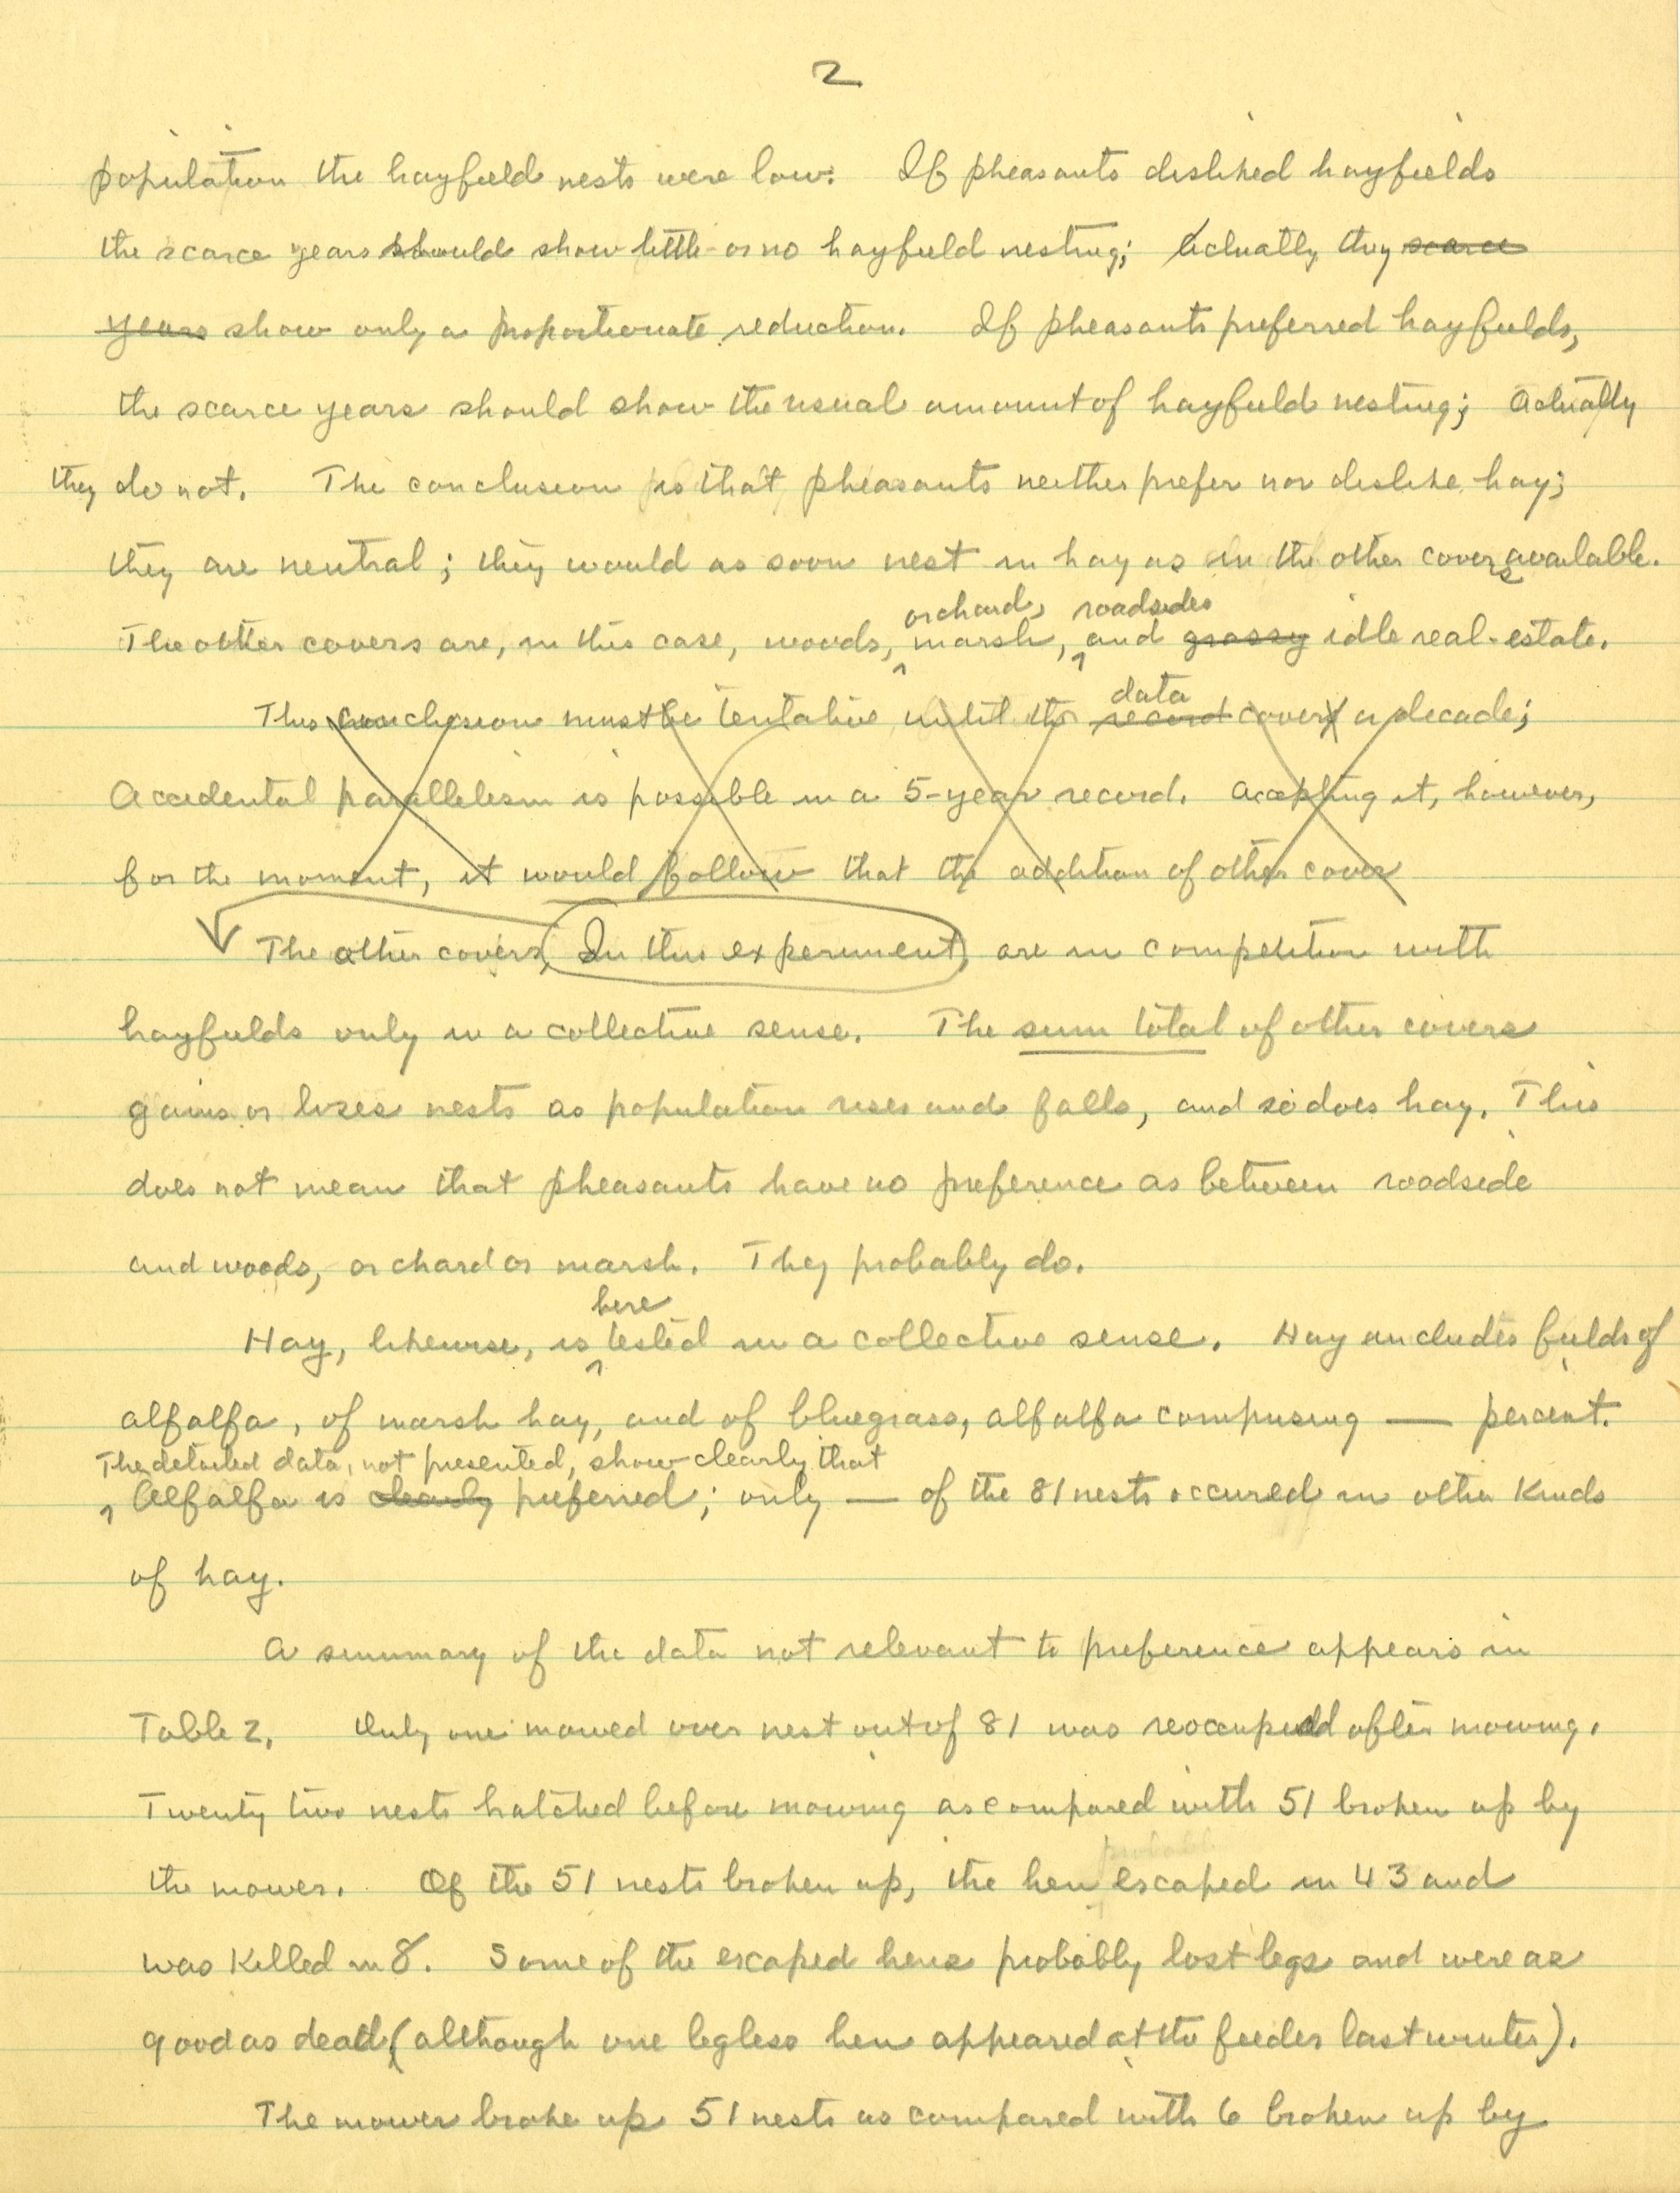 2
population the hayfield nests were low. If pheasants disliked hayfields
the scarce years should show little or no hayfield nesting; Actually they scarce
years show only a proportionate reduction. If pheasants preferred hayfields,
the scarce years should show the usual amount of hayfield nesting; actually
they do not. The conclusion is that pheasants neither prefer nor dislike hay;
they are neutral; they would as soon nest in hay as in the other covers available.
orchard, roadsides
The other covers are, in this case, woods, marsh, and grassy idle real-estate.
data
This conclusion must be tentative until the record covers a decade;
Accidental parallelism is possible in a 5-year record. Accepting it, however,
for the moment, it would follow that the addition of other cover
The other covers, In this experiment, are in competition with
hayfields only in a collective sense. The sum total of other covers
gains or loses nests as population rises and falls, and so does hay. This
does not mean that pheasants have no preference as between roadside
and woods, orchard or marsh. They probably do.
here
Hay, likewise, is tested in a collective sense. Hay includes fields of
alfalfa, of marsh hay, and of bluegrass, alfalfa composing — percent.
The detailed data, not presented, show clearly that
Alfalfa is clearly preferred; only — of the 81 nests occured in other kinds
of hay.
A summary of the data not relevant to preference appears in
Table 2. Only one mowed over nest out of 81 was reoccupied after mowing.
Twenty two nests hatched before mowing as compared with 51 broken up by
probabl
the mower. Of the 51 nests broken up, the hen escaped in 43 and
was killed in 8. Some of the escaped hens probably lost legs and were as
good as dead (although one legless hen appeared at the feeder last winter).
The mower broke up 51 nests as compared with 6 broken up by